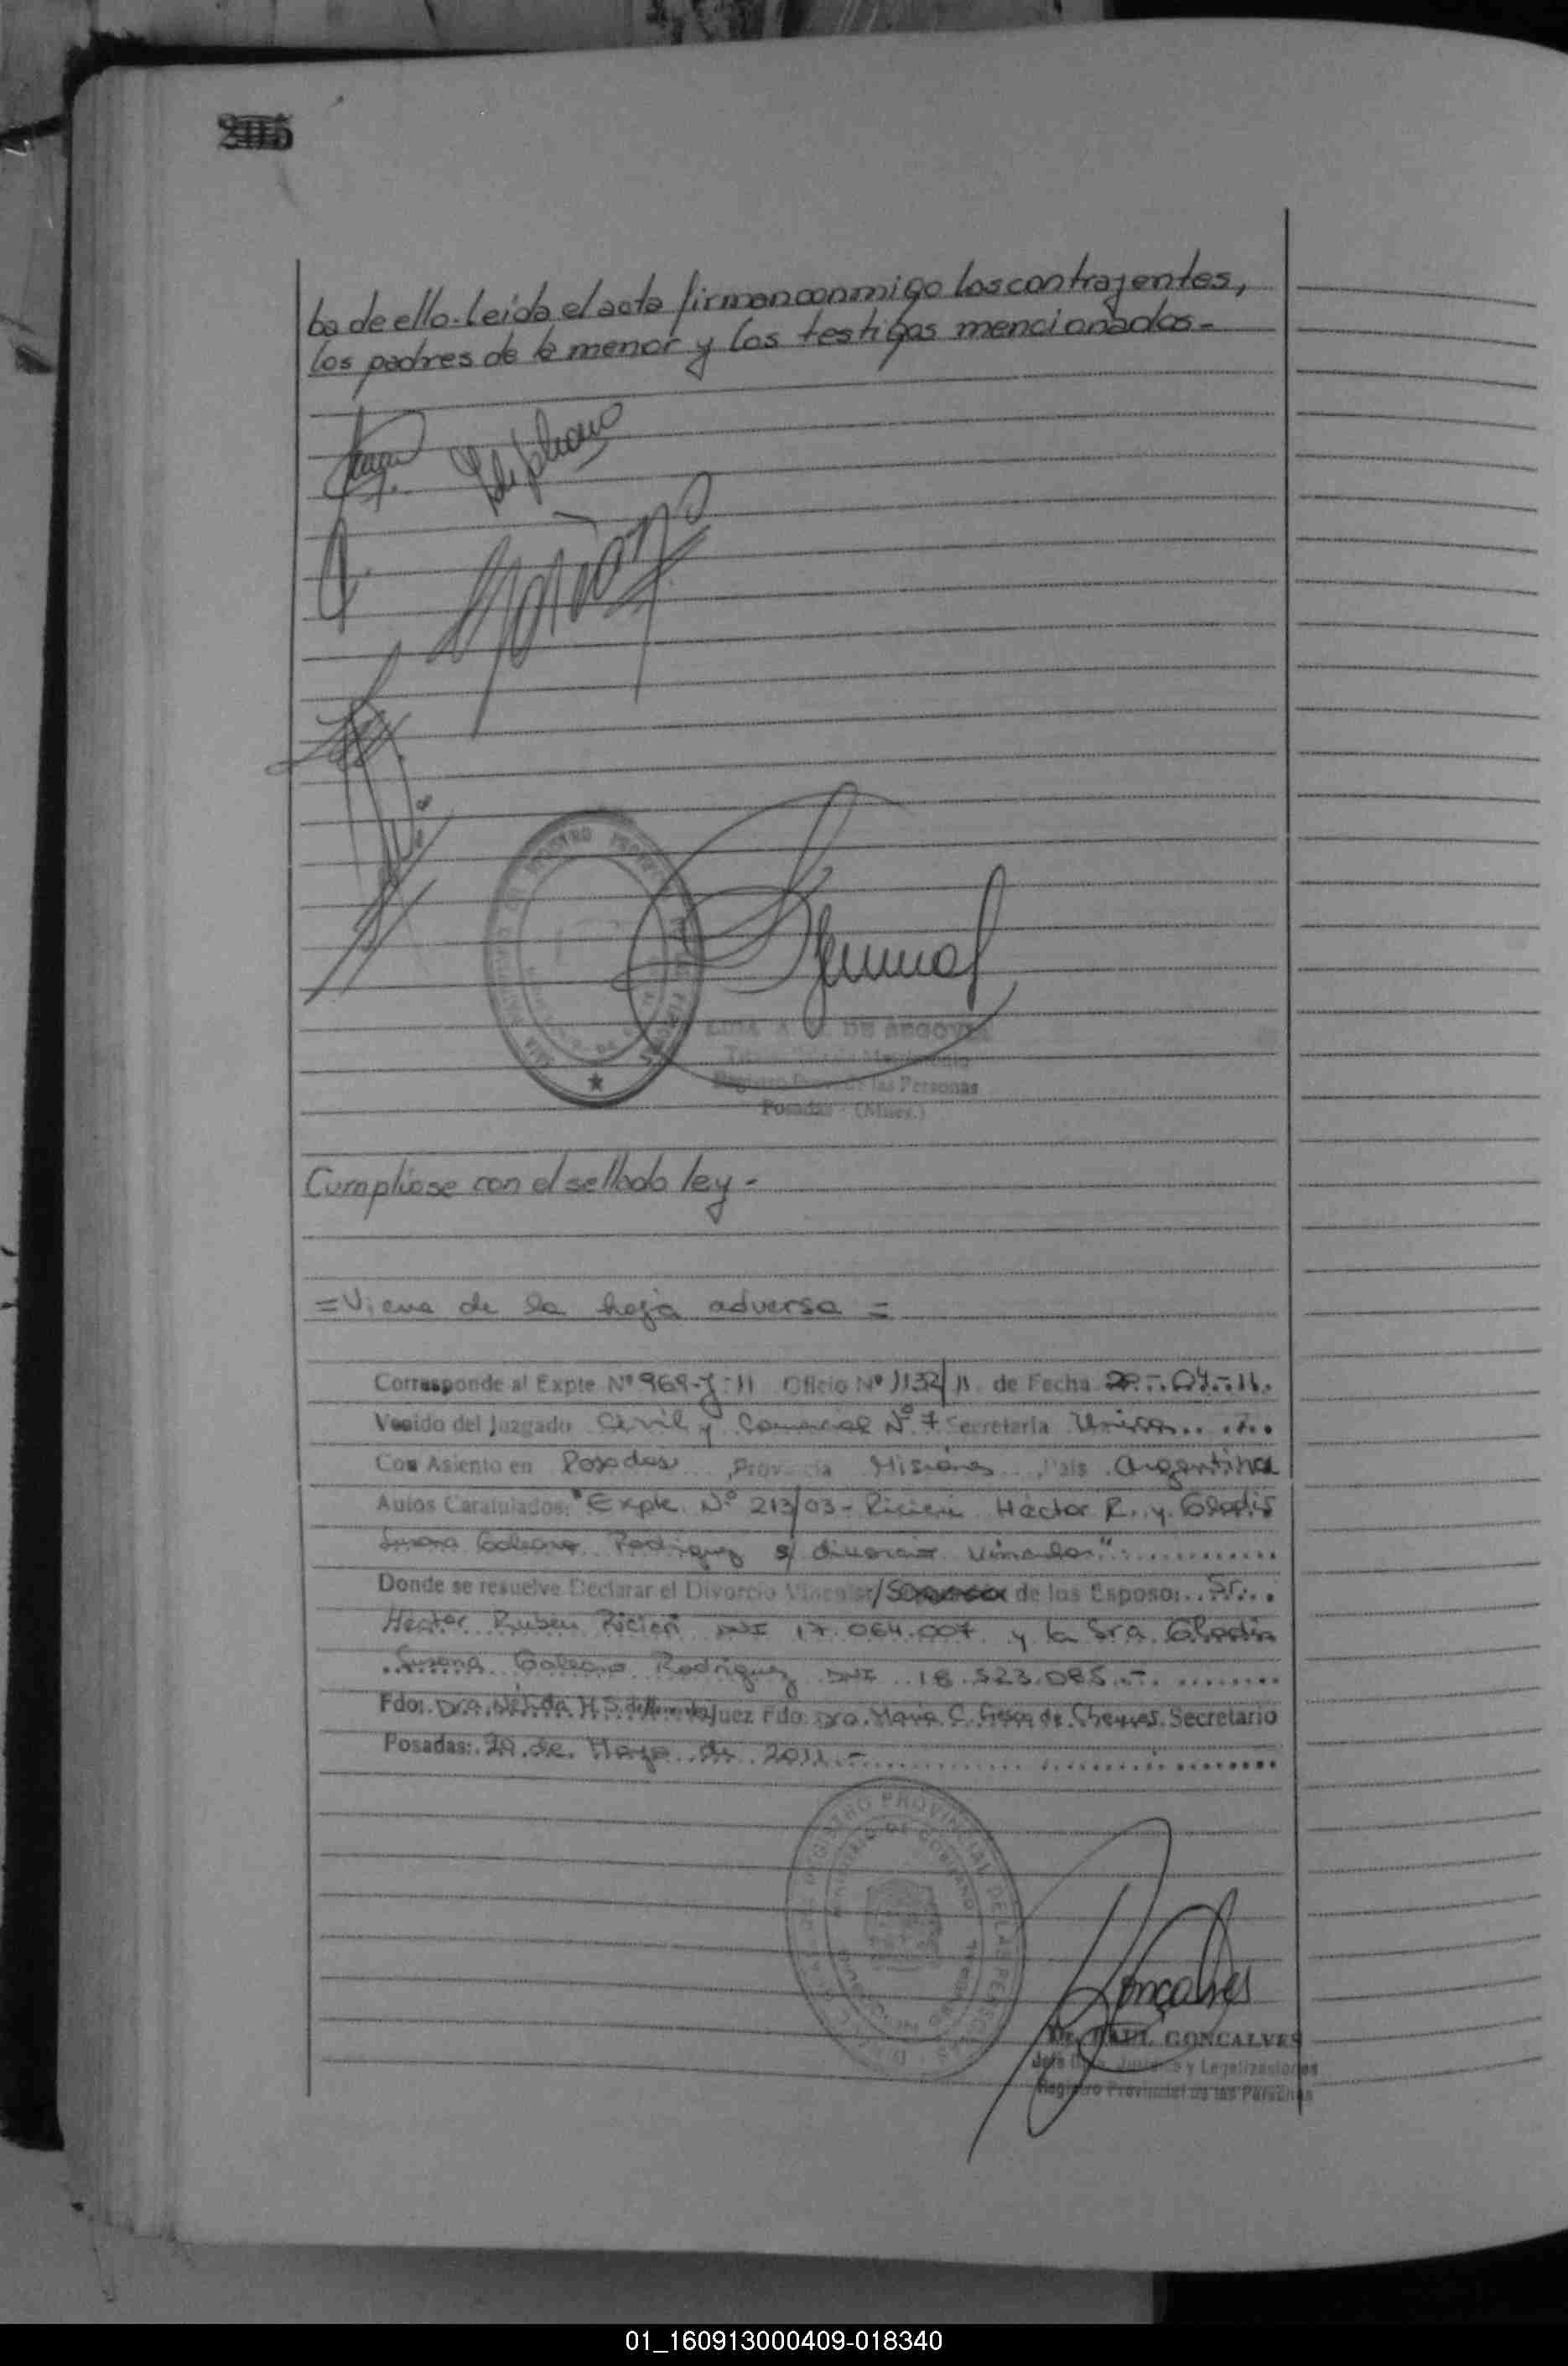 205
ba de ello. Leida el acta firman conmigo los contrayentes,
los padres de la menor y los testigos mencionados-
REGISTRO
DE SEGOVIA
Registro Prov. de las Personas
Posadas - (Mnes.)
Cumpliose con el sellado ley-
=Viene de la hoja adversa =
Corresponde al Expte Nº 969-J-11 Oficio Nº 1132/11 de Fecha 29.-04.-11.
Venido del Juzgado Civil y Comercial Nº 7 Secretaria Unica
Con Asiento en Posadas Provincia Misiones País Argentina
Autos Caratulados: "Expte. Nº 213/03 - Ricieri Hector R. y Gladis
Susana Galeano Rodriguez s/ divorcio vincular"
Donde se resuelve Declarar el Divorcio Vincular/ de los Esposo: Sr.
Hector Ruben Ricieri DNI 17.064.007 y la Sra Gladis
Susana Galeano Rodriguez DNI 18.523.085.-
Fdo: Dra. Nélida H. S. de Juez Fdo: Dra. Maria C. de Secretario
Posadas: 20 de Mayo de 2011.-
REGISTRO PROVINCIAL DE LAS PERSONAS
MINISTERIO DE GOBIERNO
Gonçalves
Dr. RAUL GONCALVES
Jefe Dpto. Jurídico y Legalizaciones
Registro Provincial de las Personas
01_160913000409-018340